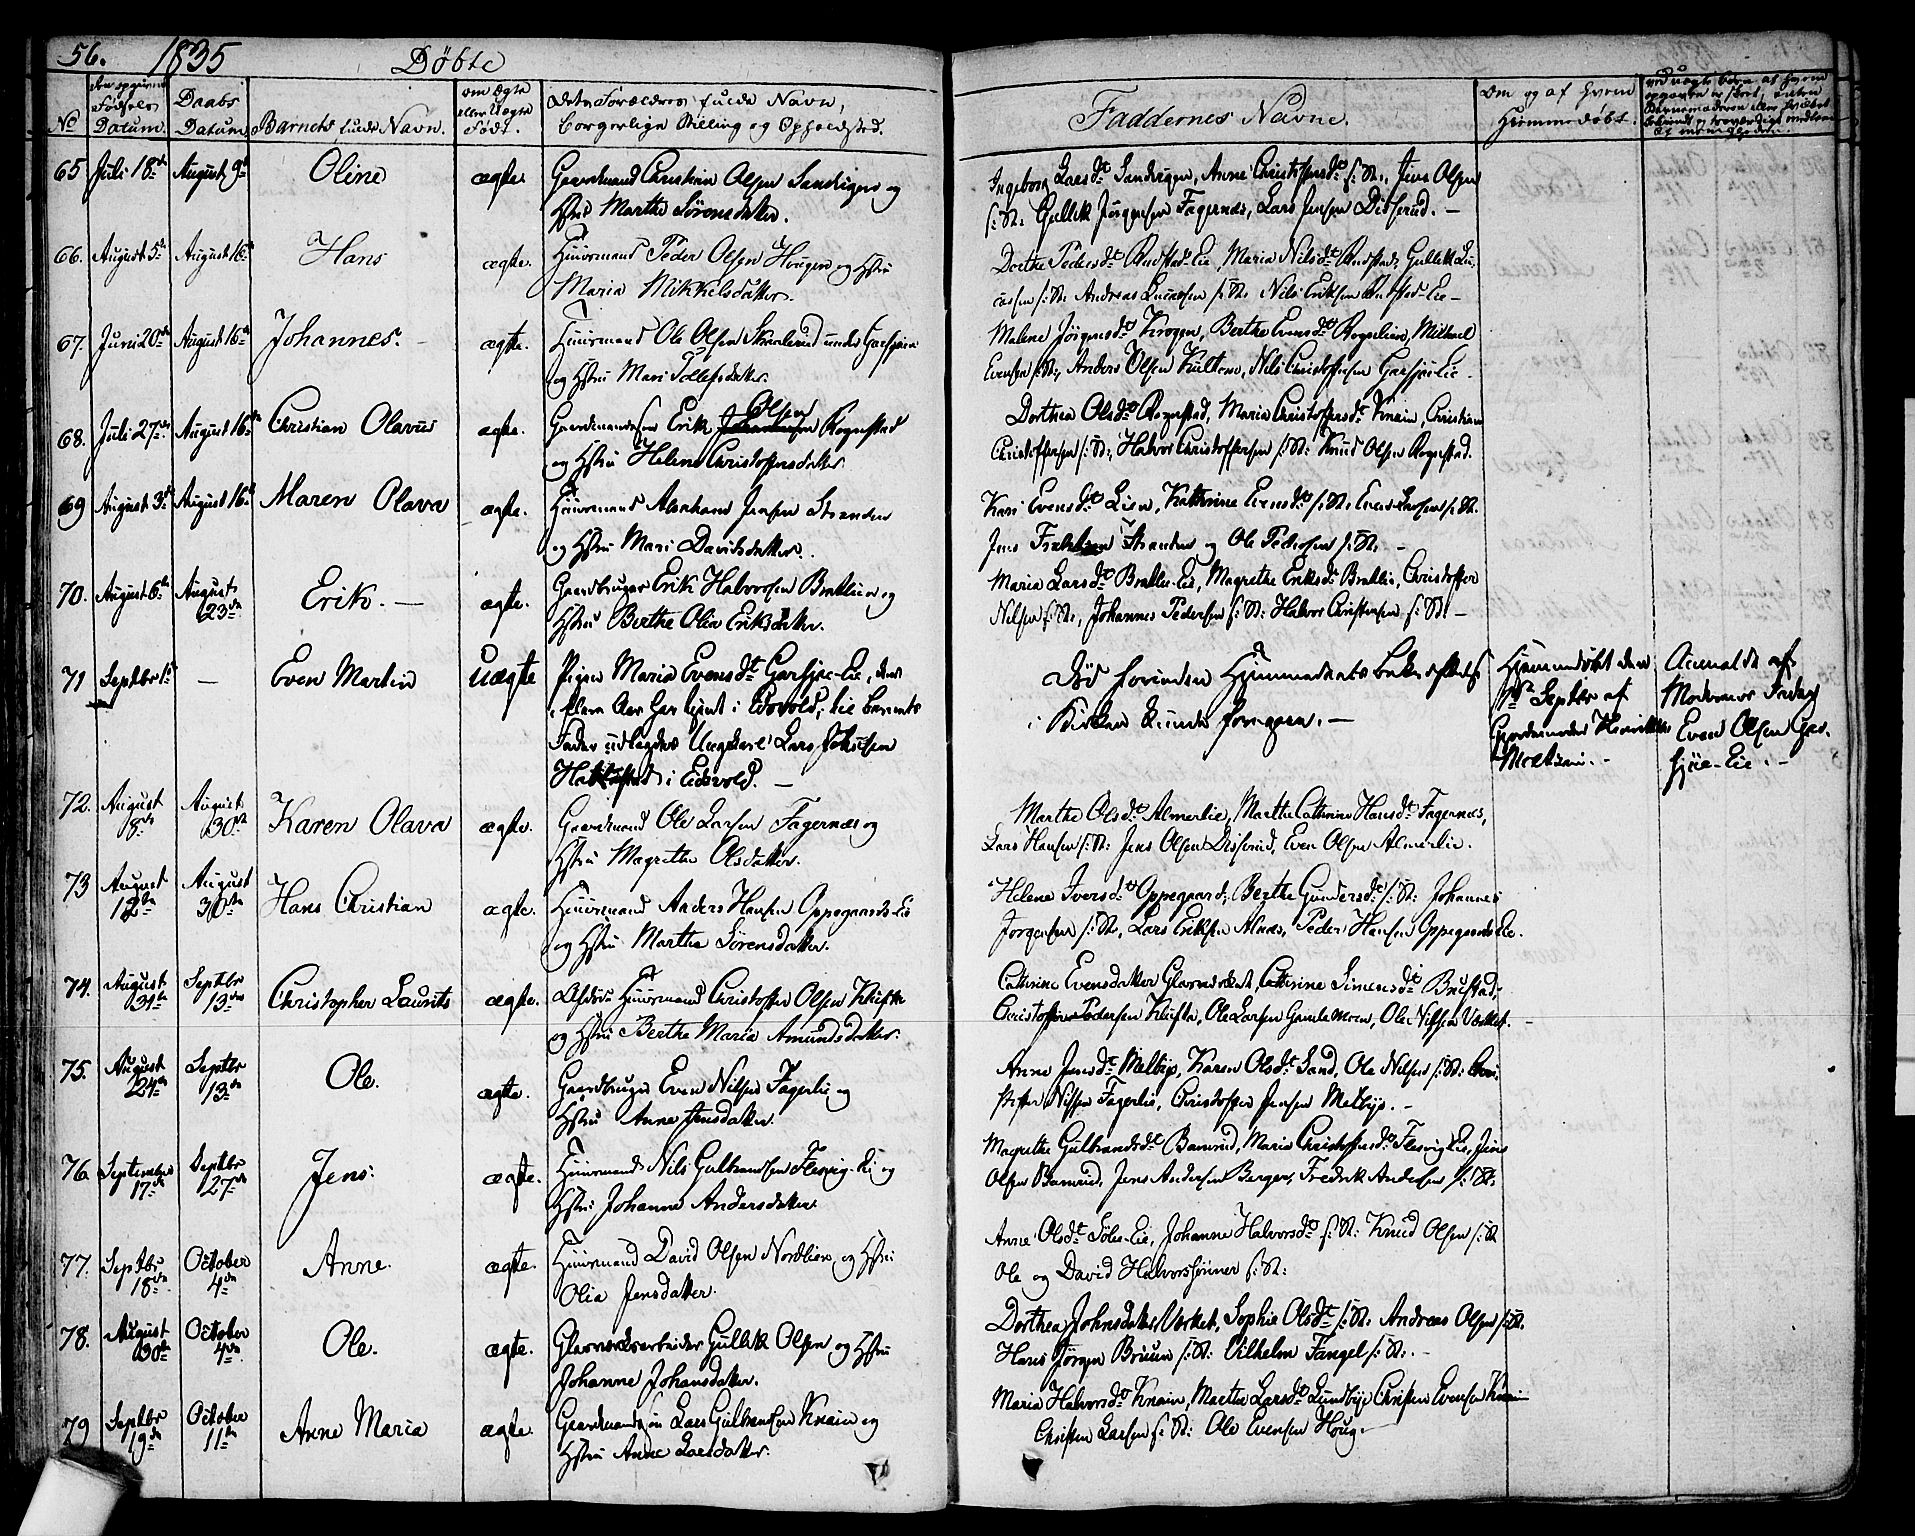 56. 1835 Døbte
No
Fødsels Datum.
Daabs Datum
Barnets fulde Navn.
om Ægte eller Uægte Født.
Forældres fulde Navn,
borgerlige Stilling og Opholdsted.
Faddernes Navne.
Om og af hvem Hjemmedøbt.
65 Juli 18de August 9de Oline ægte. Gaardmand Christian Olsen Sandvigen og
Hstru Marthe Sørensdatter.
Ingeborg Larsdt Sandvigen, Anne Christophersdt s: St:, Jens Olsen
s: St: Gullik Jørgensen Fagernæs, Lars Jensen Disserud. —
66. August 5te August 16de Hans ægte. Huusmand Peder Olsen Hougen og Hstru
Maria Mikkelsdatter.
Dorthe Pedersdt Rudstad-Eie, Maria Nilsdt Rudstad, Gullik
s: St: Andreas s: St: Nils Eriksen Rudstad-Eie —
67. Juni 20de August 16de Johannes. ægte. Huusmand Ole Olsen under Garsjøen
og Hstru Mari Tollefsdatter.
Malene Jørgensdt Krogen, Berthe Evensdt Rognlien, Mikkael
Evensen s: St:, Anders Olsen Hulten, Nils Christoffersen Garsjøe-Eie —
68. Juli 27de August 16de Christian Olavus ægte. Gaardmandssøn Erik Olsen Rognstad
og Hstru Helene Christoffersdatter
Dorthea Olsdt Rognstad, Maria Christoffersdt Knain, Christian
Christoffersen s: St:, Halvor Christoffersen s: St: Knud Olsen Rognstad.
69 August 3de August 16de Maren Olava ægte. Huusmand Abraham Jensen Stranden
og Hstru Mari Davidsdatter.
Kari Evensdt Lien, Kathrine Evensdt s: St: Even Larsen s: St.
Jens Stranden og Ole Pedersen s: St: —
70. August 6te August 23de Erik. — ægte. Gaardbruger Erik Halvorsen Bratlien og
Hstru Berthe Olea Eriksdatter.
Maria Larsdt Bratlie-Eie, Magrethe Eriksdt Bratlie, Christoffer
Nilsen s: St:, Johannes Pedersen s: St: Halvor Christensen s: St: —
71 Septbr 1ste — Even Martin Uægte Pigen Maria Evensdt Garsjøe-Eie, der
i flere Aar har tjent i Eidsvold; til Barnets
Fader udlagdes Ungkarl Lars Johnsen
i Eidsvold. —
Død forinden Hjemmedaabs Bekræftelse
i Kirken kunde foregaae. —
Hjemmedøbt den
Septbr af
Gjordemoder
Anmeldt af
Morfader
Even Olsen Gar-
sjøe-Eie. —
72. August 8de August 30de Karen Olava ægte. Gaardmand Ole Larsen Fagernæs og
Hstru Magrethe Olsdatter.
Marthe Olsdt Almerlie, Marthe Cathrine Hansdt Fagernæs,
Lars Hansen s: St: Jens Olsen Disserud, Even Olsen Almerlie.
73 August 12te August 30te Hans Christian ægte. Huusmand Anders Hansen Oppegaards-Eie
og Hstru Marthe Sørensdatter.
Helene Iversdt Oppegaard, Berthe Gundersdt s: St: Johannes
Jørgensen s: St:, Lars Eriksen Alnæs, Peder Hansen Oppegaards Eie.
74. August 31te Septbr 13de Christopher Laurits ægte. Afdøde Huusmand Christoffer Olsen Klufte
og Hstru Berthe Maria Amundsdatter.
Cathrine Evensdatter Glasværket, Cathrine Simensdt Brustad,
Christoffer Pedersen Klufta, Ole Larsen Gamlemoen, Ole Nilssen Værket. —
75. August 24de Septbr 13de Ole. ægte. Gaardbruger Even Nilsen Fagerlie og
Hstru Anne Jensdatter.
Anne Jensdt Melbye, Karen Olsdt Sand, Ole Nilsen s: St: Chri-
stoffer Nilssen Fagerlie, Christoffer Jensen Melbye. —
76. September 17de Septbr 27de Jens: ægte. Huusmand Nils Gulbrandsen Flesvig-Ei og
Hstru Johanne Andersdatter
Magrethe Gulbrandsdt Bamrud, Maria Christoffersdt Flesvig Eie, Jens
Olsen Bamrud, Jens Andersen Berger, Fredrik Andersen s: St:
77. Septbr 18de October 4de Anne. ægte. Huusmand David Olsen Nordlien og Hstru
Olia Jensdatter.
Anne Olsdt Eie, Johanne Halvorsdt s: St: Knud Olsen s: St
Ole og David Halvorssønner s: St:
78. August 30te October 4de Ole. ægte. Glasværksarbeider Gullik Olsen og Hstru
Johanne Johansdatter.
Dorthea Johnsdatter Værket, Sophie Olsdt s: St: Andreas Olsen s: St.
Hans Jørgen Bruun s: St: Vilhelm Fangel s: St: —
79 Septbr 19de October 11te Anne Maria ægte. Gaardmandssøn Lars Gulbrandsen Knain og
Hstru Anne Larsdatter.
Maria Halvorsdt Knain, Marthe Larsdt Lundbye Christen Evensen Knain
Christen Larsen s: St: Ole Evensen Houg.